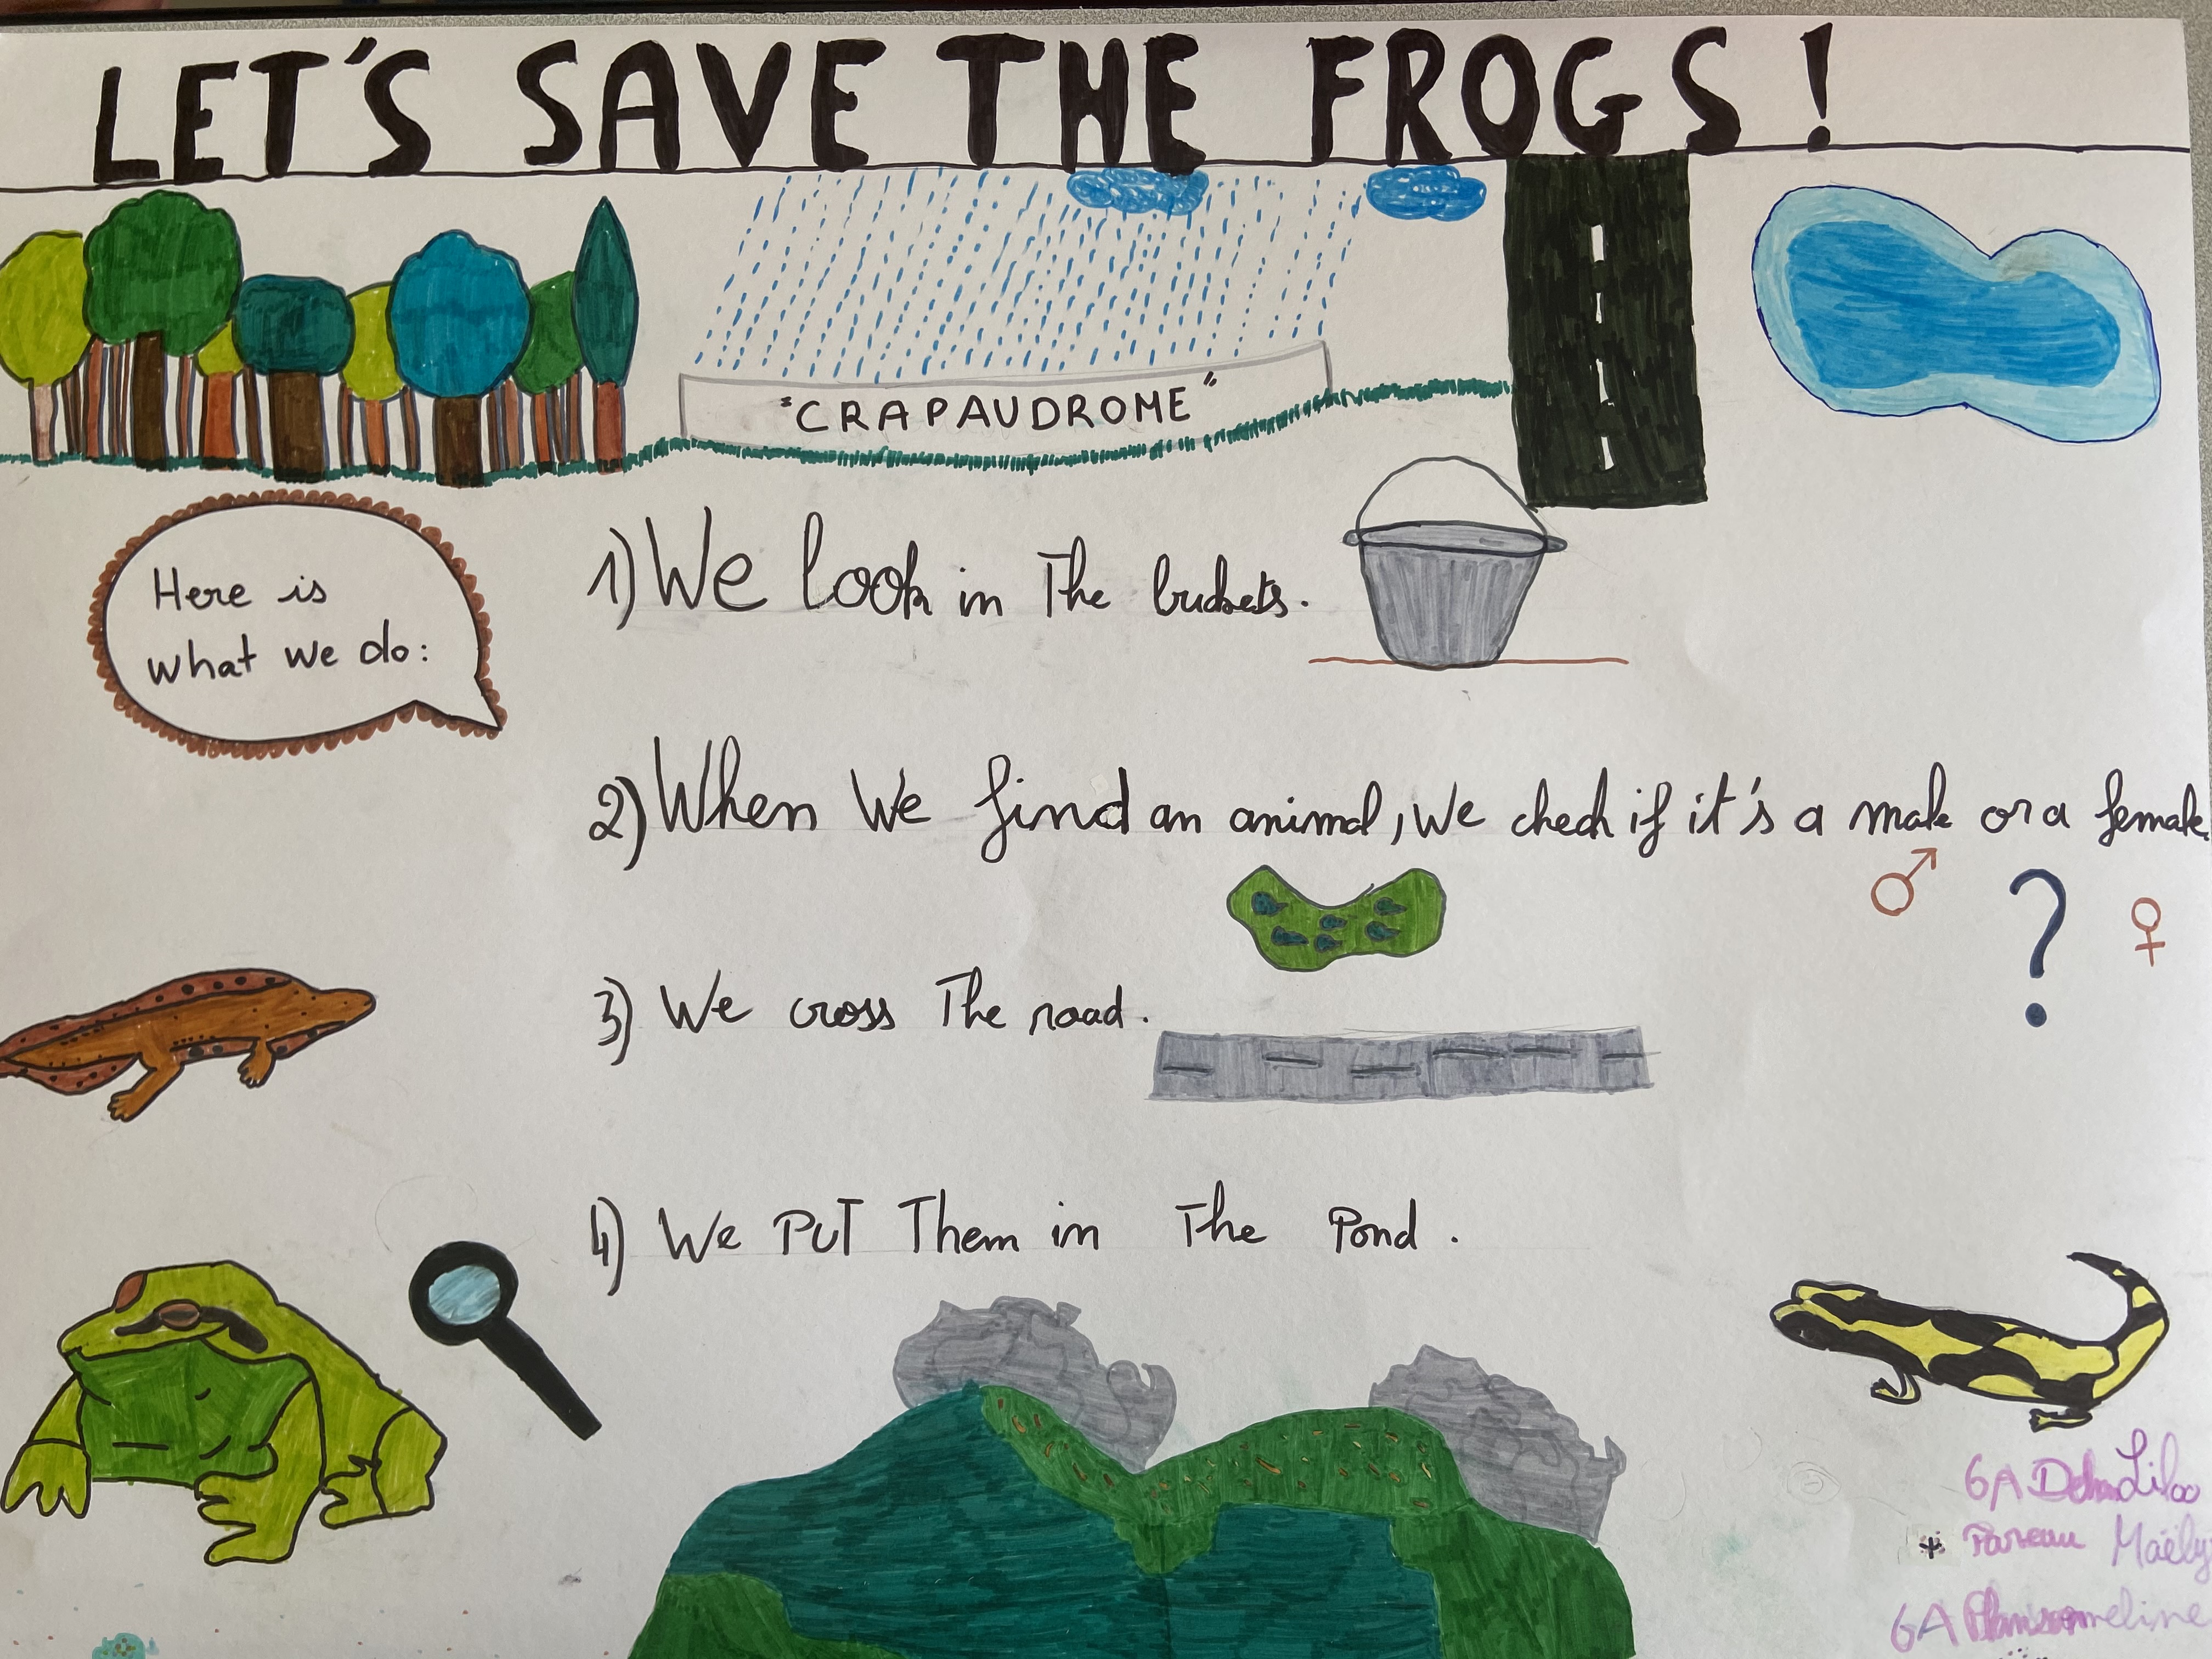 LET'S SAVE THE FROGS!
"CRAPAUDROME"
Here is
what we do:
1) We look in The buckets.
2) When We find an animal, We check if it's a male or a female.
?
3) We cross The road.
4) We PUT Them in The Pond.
6A Liloo
* Maëly
6A